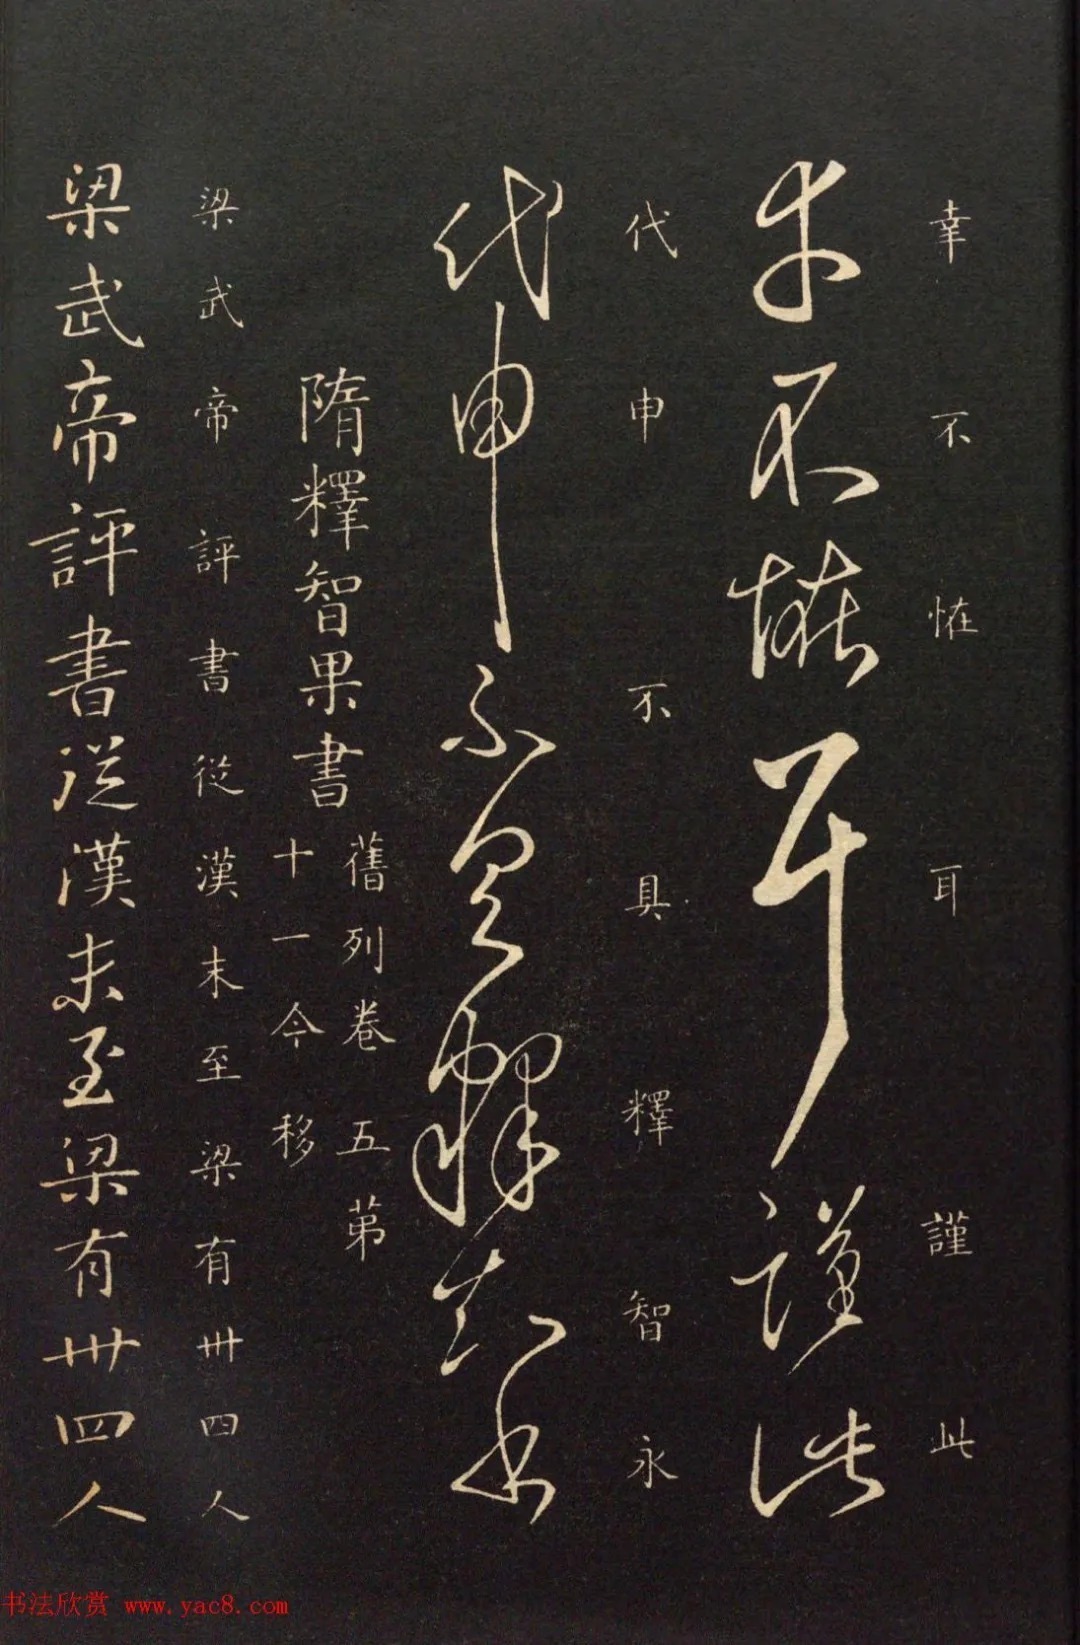 幸不怪耳謹此
幸不怪耳謹此
代申不具釋智永
代申不具釋智永
隋釋智果書
舊列卷五第
十一今移
梁武帝評書從漢末至梁有卅四人
梁武帝評書從漢末至梁有卅四人
书法欣赏 www.yac8.com